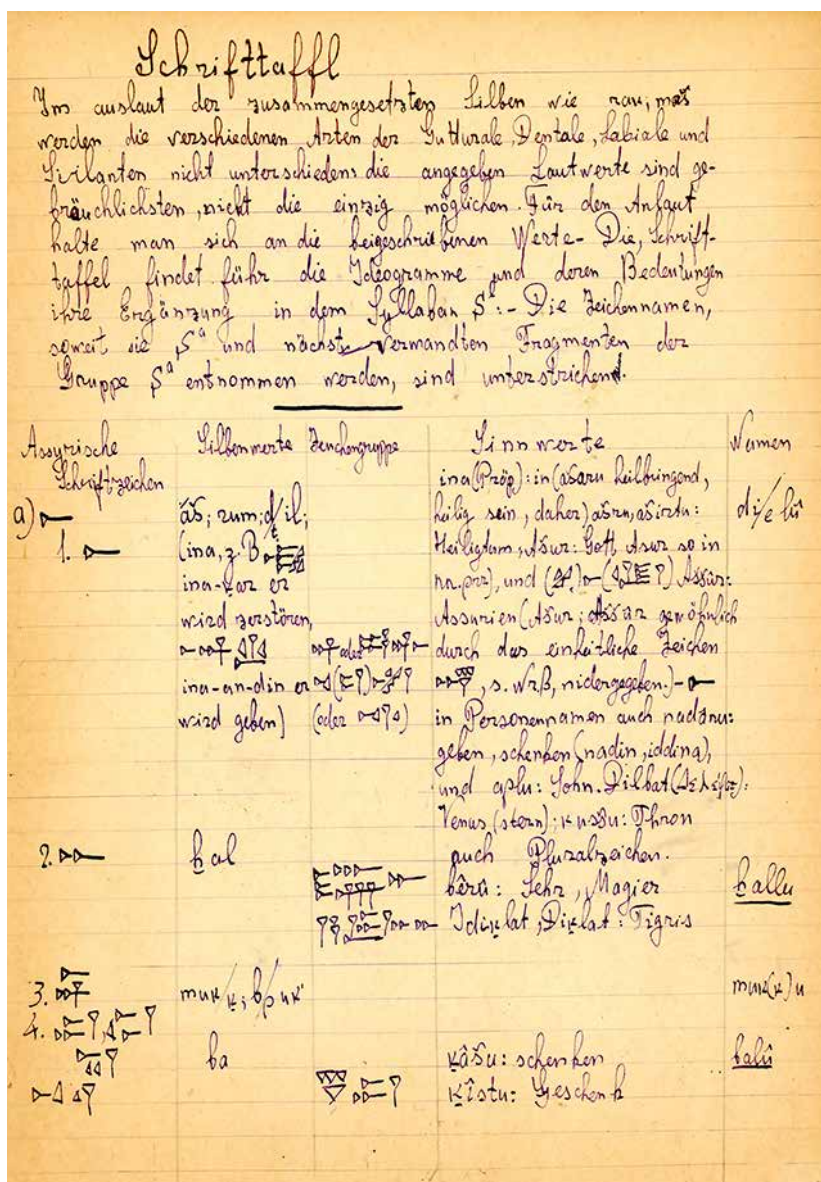 Schrifttaffl
Im auslaut der zusammengesetzten Silben wie rau, maš
werden die verschiedenen Arten der Gutturale, Dentale, Labiale und
Sivilanten nicht unterschieden: die angegeben Lautwerte sind ge-
bräuchlichsten, nicht die einzig möglichen. Für den Anfaut
halte man sich an die beigeschriebenen Werte- Die, Schrift-
taffel findet führ die Ideogramme und deren Bedeutungen
ihre Ergänzung in dem Syllaban Sᵃ:- Die Zeichennamen,
soweit sie Sᵃ und nächst verwandten Fragmenten der
Gruppe Sᵃ entnommen werden, sind unterstrichen.
Assyrische Schriftzeichen
Silbenwerte
Zeuchengruppe
Sinnwerte
Namen
a)
1.
áš; rum; d/til;
(ina, z.B
ina-ḳar er
wird zerstören,
ina-an-din er
wird geben)
oder
(oder
ina (Präp): in (ašaru heilbringend,
heilig sein, daher) ašru, aširtu:
Heiligtum, Ašur: Gott Asur so in
na.prr), und Aššur:
Assurien (Ašur; Aššar gewöhnlich
durch das einheitliche Zeichen
, s. Nr8, nidergegeben.)-
in Personennamen auch nadānu:
geben, schenken (nadin, iddina),
und aplu: Sohn. Dilbat
Venus (stern); kussu: Thron
auch Pluralzeichen.
di/e lû
2.
ḫal
bêrû: Sehr, Magier
Idiḳlat, Diḳlat: Tigris
ḫallu
3.
muk/ḳ; b/puk
muk(k)u
4.
ba
ḳâšu: schenken
ḳîstu: Geschenk
balû